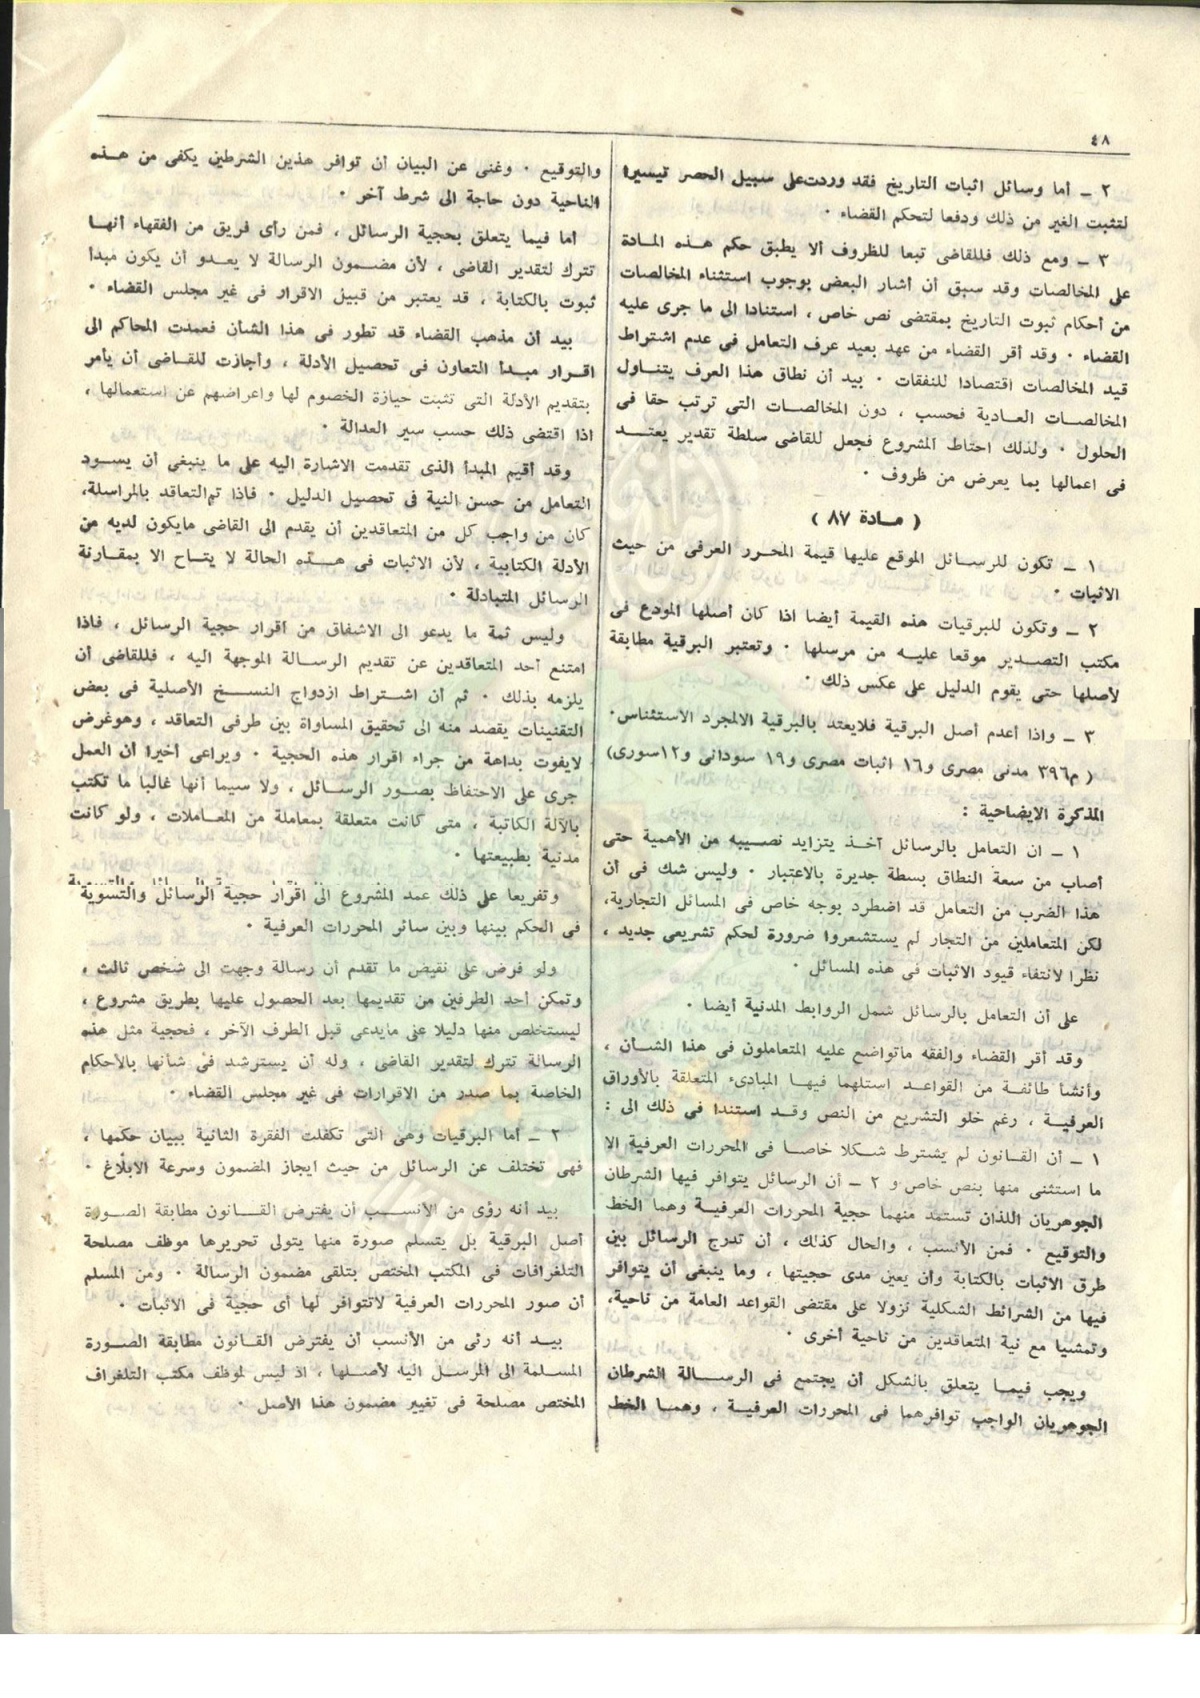 ٤٨
٢ ـ أما وسائل اثبات التاريخ فقد وردت على سبيل الحصر تيسيرا
لتثبت الغير من ذلك ودفعا لتحكم القضاء ٠
٣ ـ ومع ذلك فللقاضى تبعا للظروف ألا يطبق حكم هذه المادة
على المخالصات وقد سبق أن أشار البعض بوجوب استثناء المخالصات
من أحكام ثبوت التاريخ بمقتضى نص خاص ، استنادا الى ما جرى عليه
القضاء ٠ وقد أقر القضاء من عهد بعيد عرف التعامل فى عدم اشتراط
قيد المخالصات اقتصادا للنفقات ٠ بيد أن نطاق هذا العرف يتناول
المخالصات العادية فحسب ، دون المخالصات التي ترتب حقا فى
الحلول ٠ ولذلك احتاط المشروع فجعل للقاضى سلطة تقدير يعتد
فى اعمالها بما يعرض من ظروف ٠
( مادة ٨٧ )
١ ـ تكون للرسائل الموقع عليها قيمة المحرر العرفى من حيث
الاثبات ٠
٢ ـ وتكون للبرقيات هذه القيمة أيضا اذا كان أصلها المودع فى
مكتب التصدير موقعا عليه من مرسلها ٠ وتعتبر البرقية مطابقة
لأصلها حتى يقوم الدليل على عكس ذلك ٠
٣ ـ واذا أعدم أصل البرقية فلا يعتد بالبرقية الا لمجرد الاستئناس٠
( م٣٩٦ مدنى مصرى و١٦ اثبات مصرى و١٩ سودانى و١٢سورى)
المذكرة الايضاحية :
١ ـ ان التعامل بالرسائل آخذ يتزايد نصيبه من الأهمية حتى
أصاب من سعة النطاق بسطة جديرة بالاعتبار ٠ وليس شك فى أن
هذا الضرب من التعامل قد اضطرد بوجه خاص فى المسائل التجارية،
لكن المتعاملين من التجار لم يستشعروا ضرورة لحكم تشريعى جديد ،
نظرا لانتفاء قيود الاثبات فى هذه المسائل ٠
على أن التعامل بالرسائل شمل الروابط المدنية أيضا ٠
وقد أقر القضاء والفقه ماتواضع عليه المتعاملون فى هذا الشأن ،
وأنشأ طائفة من القواعد استلهما فيها المبادىء المتعلقة بالأوراق
العرفية ، رغم خلو التشريع من النص وقد استندا فى ذلك الى :
١ ـ أن القانون لم يشترط شكلا خاصا فى المحررات العرفية الا
ما استثنى منها بنص خاص و ٢ ـ أن الرسائل يتوافر فيها الشرطان
الجوهريان اللذان تستمد منهما حجية المحررات العرفية وهما الخط
والتوقيع ٠ فمن الأنسب ، والحال كذلك ، أن تدرج الرسائل بين
طرق الاثبات بالكتابة وان يعين مدى حجيتها ، وما ينبغى أن يتوافر
فيها من الشرائط الشكلية نزولا على مقتضى القواعد العامة من ناحية،
وتمشيا مع نية المتعاقدين من ناحية أخرى ٠
ويجب فيما يتعلق بالشكل أن يجتمع فى الرسالة الشرطان
الجوهريان الواجب توافرهما فى المحررات العرفية ، وهما الخط
والتوقيع ٠ وغنى عن البيان أن توافر هذين الشرطين يكفى من هذه
الناحية دون حاجة الى شرط آخر ٠
أما فيما يتعلق بحجية الرسائل ، فمن رأى فريق من الفقهاء أنها
تترك لتقدير القاضى ، لأن مضمون الرسالة لا يعدو أن يكون مبدأ
ثبوت بالكتابة ، قد يعتبر من قبيل الاقرار فى غير مجلس القضاء ٠
بيد أن مذهب القضاء قد تطور فى هذا الشأن فعمدت المحاكم الى
اقرار مبدأ التعاون فى تحصيل الأدلة ، وأجازت للقاضى أن يأمر
بتقديم الأدلة التى تثبت حيازة الخصوم لها واعراضهم عن استعمالها ،
اذا اقتضى ذلك حسب سير العدالة ٠
وقد أقيم المبدأ الذى تقدمت الاشارة اليه على ما ينبغى أن يسود
التعامل من حسن النية فى تحصيل الدليل ٠ فاذا تم التعاقد بالمراسلة،
كان من واجب كل من المتعاقدين أن يقدم الى القاضى مايكون لديه من
الأدلة الكتابية ، لأن الاثبات فى هذه الحالة لا يتاح الا بمقارنة
الرسائل المتبادلة ٠
وليس ثمة ما يدعو الى الاشفاق من اقرار حجية الرسائل ، فاذا
امتنع أحد المتعاقدين عن تقديم الرسالة الموجهة اليه ، فللقاضى أن
يلزمه بذلك ٠ ثم أن اشتراط ازدواج النسخ الأصلية فى بعض
التقنينات يقصد منه الى تحقيق المساواة بين طرفى التعاقد ، وهوغرض
لايفوت بداهة من جراء اقرار هذه الحجية ٠ ويراعى أخيرا أن العمل
جرى على الاحتفاظ بصور الرسائل ، ولا سيما أنها غالبا ما تكتب
بالآلة الكاتبة ، متى كانت متعلقة بمعاملة من المعاملات ، ولو كانت
مدنية بطبيعتها ٠
وتفريعا على ذلك عمد المشروع الى اقرار حجية الرسائل والتسوية
فى الحكم بينها وبين سائر المحررات العرفية ٠
ولو فرض على نقيض ما تقدم أن رسالة وجهت الى شخص ثالث ،
وتمكن أحد الطرفين من تقديمها بعد الحصول عليها بطريق مشروع ،
ليستخلص منها دليلا على مايدعى قبل الطرف الآخر ، فحجية مثل هذه
الرسالة تترك لتقدير القاضى ، وله أن يسترشد فى شأنها بالأحكام
الخاصة بما صدر من الاقرارات فى غير مجلس القضاء ٠
٢ ـ أما البرقيات وهى التى تكفلت الفقرة الثانية ببيان حكمها ،
فهى تختلف عن الرسائل من حيث ايجاز المضمون وسرعة الابلاغ ٠
بيد أنه رؤى من الأنسب أن يفترض القانون مطابقة الصورة
أصل البرقية بل يتسلم صورة منها يتولى تحريرها موظف مصلحة
التلغرافات فى المكتب المختص بتلقى مضمون الرسالة ٠ ومن المسلم
أن صور المحررات العرفية لاتتوافر لها أى حجية فى الاثبات ٠
بيد أنه رئى من الأنسب أن يفترض القانون مطابقة الصورة
المسلمة الى المرسل اليه لأصلها ، اذ ليس لموظف مكتب التلغراف
المختص مصلحة فى تغيير مضمون هذا الأصل ٠